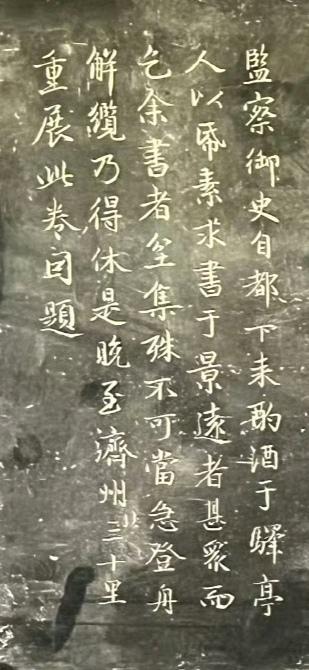 監察御史自都下来酌酒于驛亭
人以帋素求書于景遠者甚衆而
乞余書者坌集殊不可當急登舟
解纜乃得休是晚至濟州北三十里
重展此卷因題